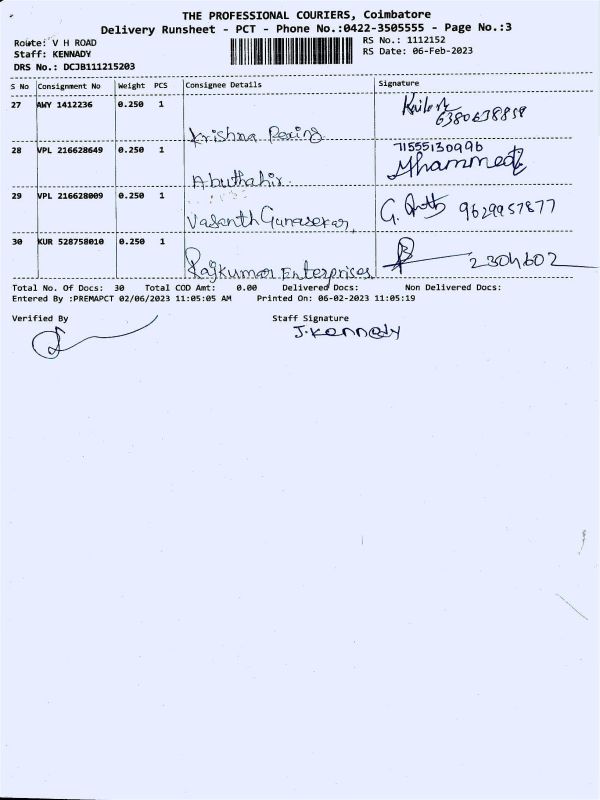 THE PROFESSIONAL COURIERS, Coimbatore
Delivery Runsheet - PCT - Phone No.:0422-3505555 - Page No.:3
Route: V H ROAD
RS No.: 1112152
Staff: KENNADY
RS Date: 06-Feb-2023
DRS No.: DCJB111215203
S No Consignment No Weight PCS Consignee Details Signature
27 AWY 1412236 0.250 1
6380638859
Krishna Pexing
28 VPL 216628649 0.250 1 7155513099b
Mhammed
Abuthahir.
29 VPL 216628009 0.250 1
G. 9629957877
Vasanth Gunasekar
30 KUR 528758010 0.250 1
2304602
Rajkumar Enterprises
Total No. Of Docs: 30 Total COD Amt: 0.00 Delivered Docs: Non Delivered Docs:
Entered By :PREMAPCT 02/06/2023 11:05:05 AM Printed On: 06-02-2023 11:05:19
Verified By Staff Signature
J.Kennedy